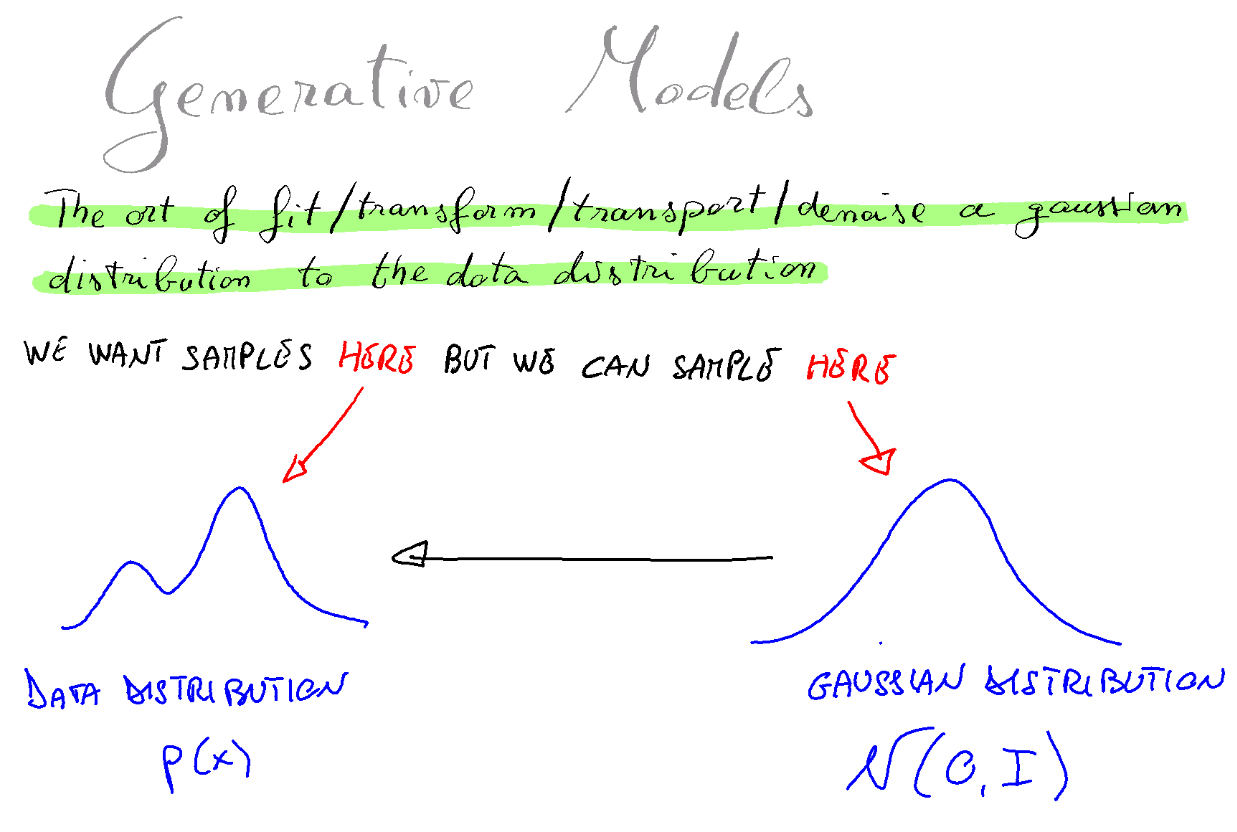 Generative Models
The art of fit/transform/transport/denoise a gaussian
distribution to the data distribution
WE WANT SAMPLES HERE BUT WE CAN SAMPLE HERE
DATA DISTRIBUTION
GAUSSIAN DISTRIBUTION
p(x)
N(0, I)